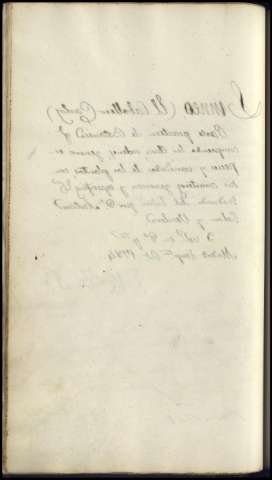 Linneo (El Caballero Carlos)
Parte practica de Botanica q.
comprende las clases, ordenes, generos es-
pecies y variedades de las plantas con
sus caracteres genericos y especificos &c.
traducida del latin por Dn. Antonio
Palau y Verdera
8 vol. en 8º y
Madrid Impta. Rl. 1784